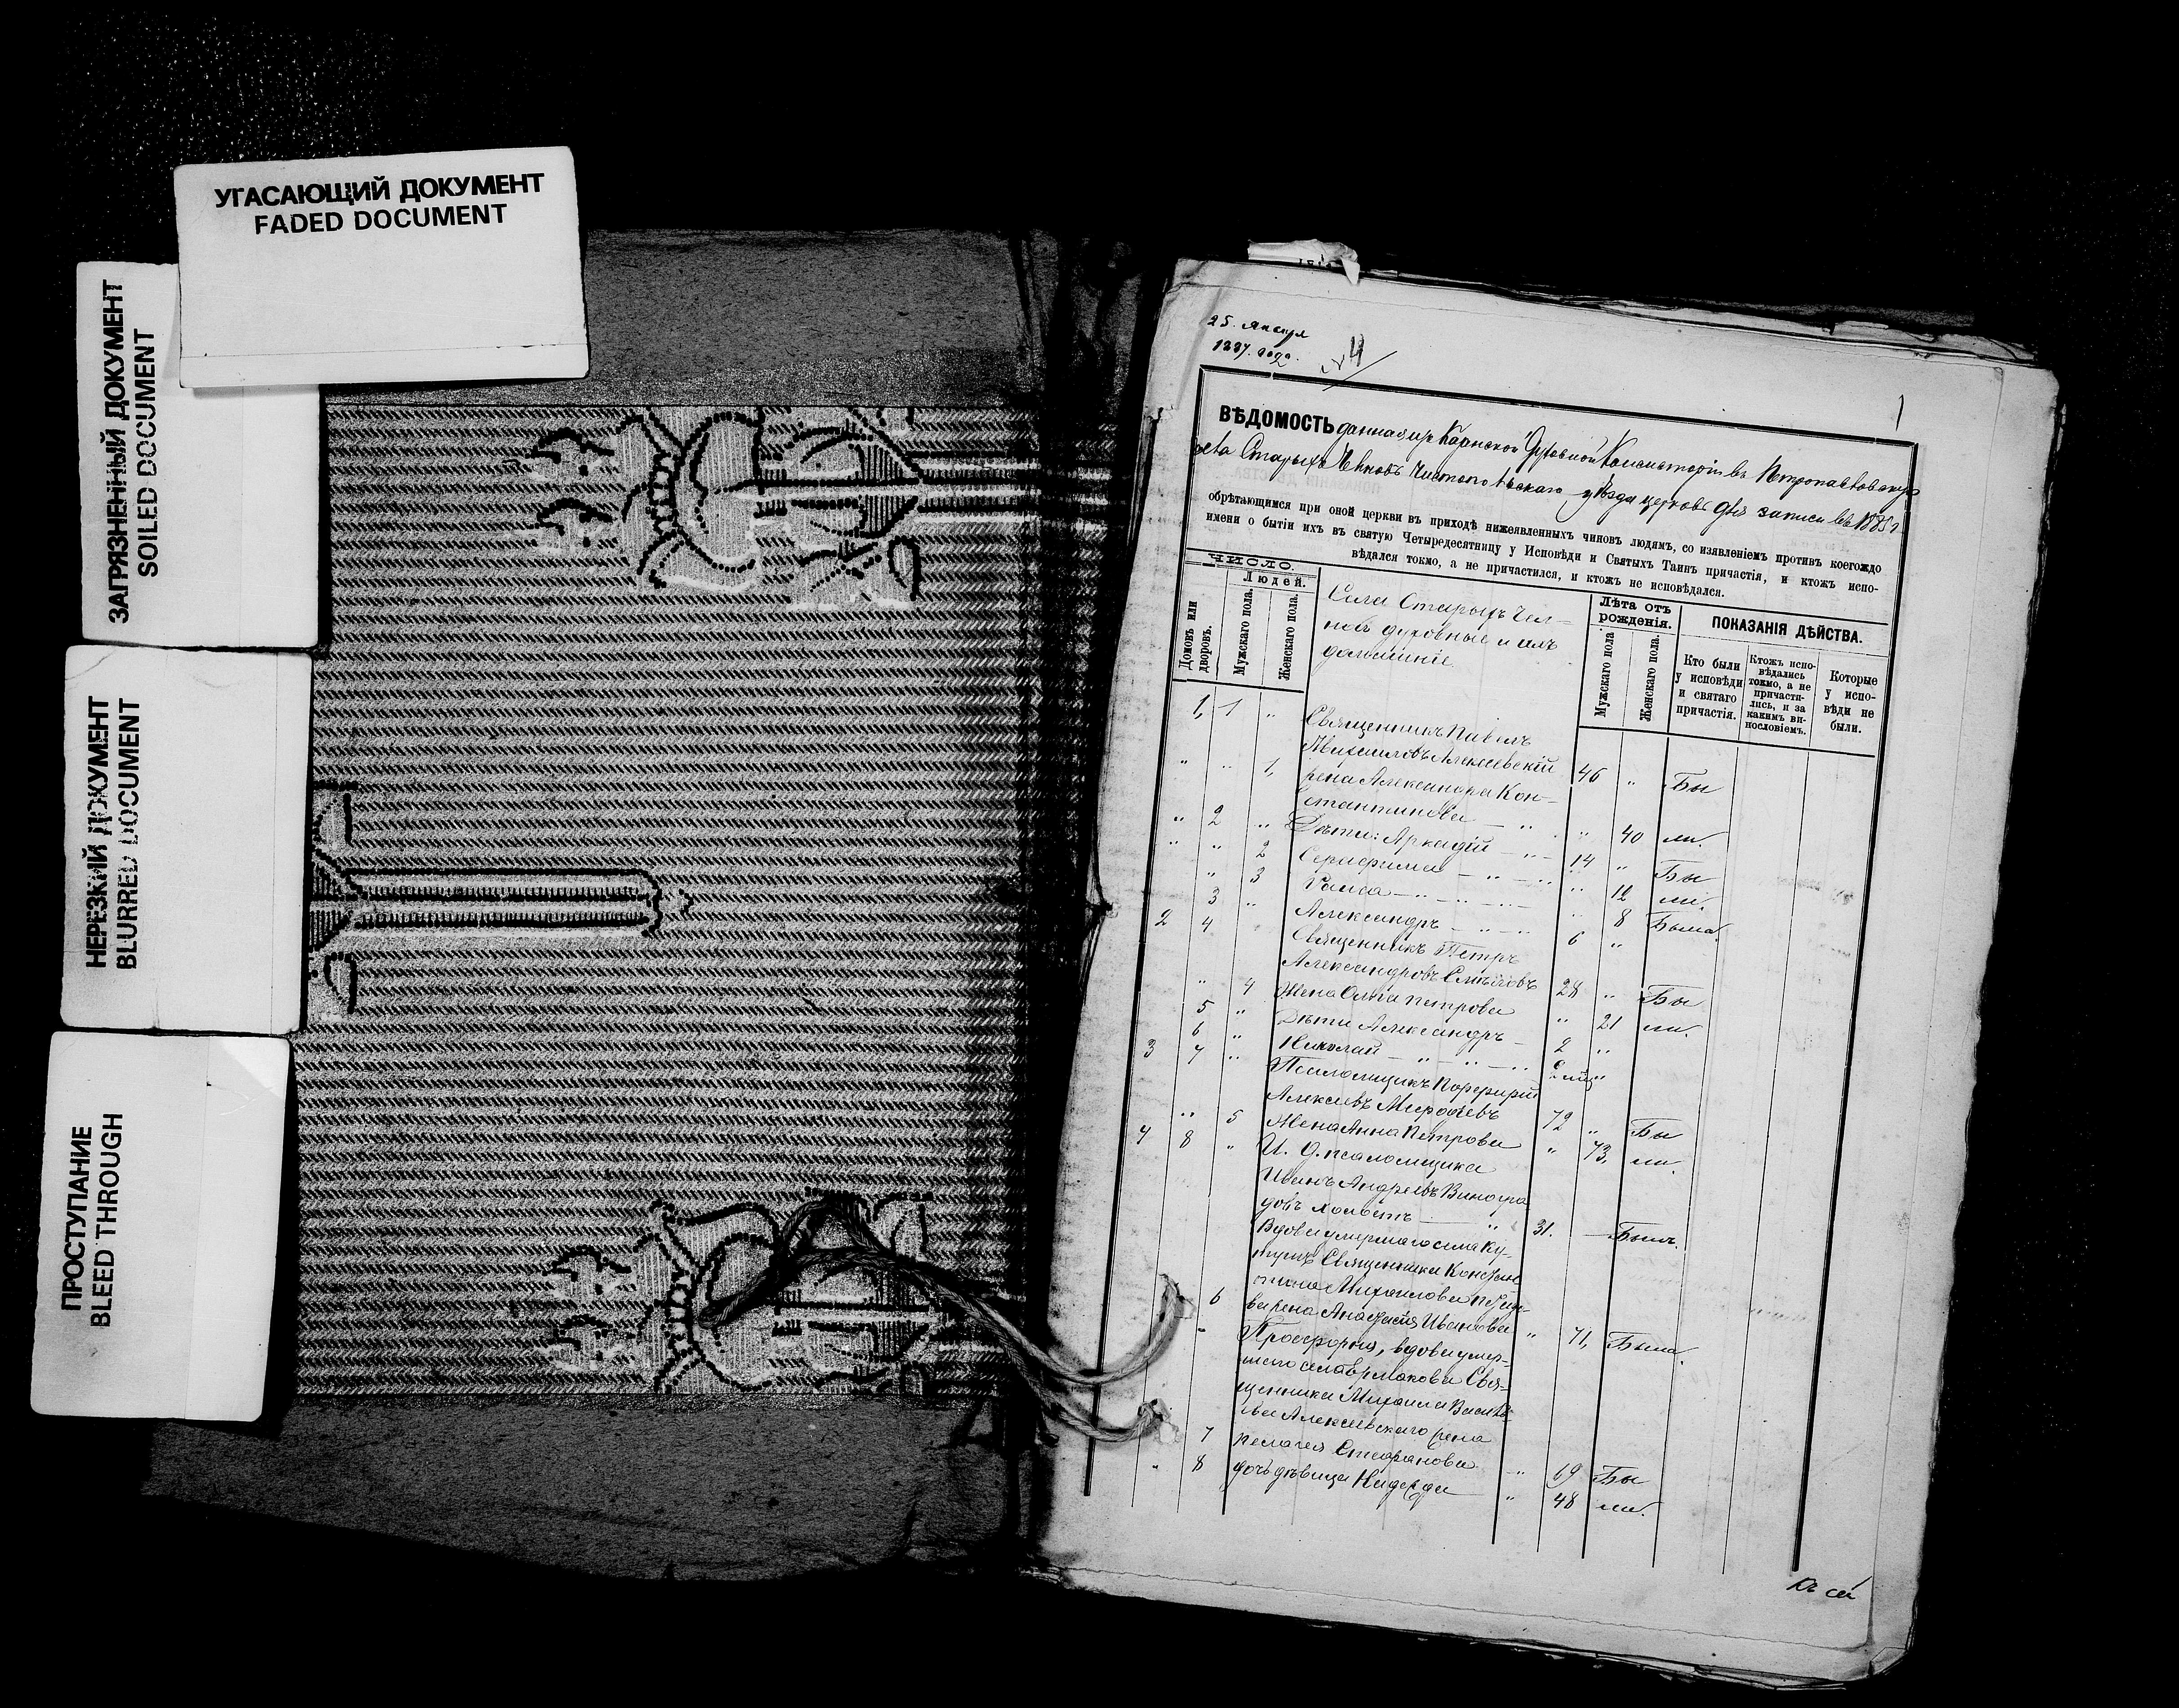 УГАСАЮЩИЙ ДОКУМЕНТ
FADED DOCUMENT
ЗАГРЯЗНЕННЫЙ ДОКУМЕНТ
SOILED DOCUMENT
НЕРЕЗКИЙ ДОКУМЕНТ
BLURRED DOCUMENT
ПРОСТУПАНИЕ
BLEED THROUGH
25. января
1887. года.
№ 4
1
ВѢДОМОСТЬ данная изъ Казнской Духовной Консисторіи въ Петропавловскую
села Старыхъ Челновъ Чистопольскаго уѣзда церковь для записи въ 1885 г
обрѣтающимся при оной церкви въ приходѣ нижеявленныхъ чиновъ людямъ, со изявленіемъ противъ коегождо
имени о бытіи ихъ въ святую Четыредесятницу у Исповѣди и Святыхъ Таинъ причастія, и ктожъ испо-
вѣдался токмо, а не причастился, и ктожъ не исповѣдался.
ЧИСЛО.
Людей.
Домовъ или дворовъ.
Мужскаго пола.
Женскаго пола.
Села Старыхъ Чел-
новъ духовные и ихъ
домашніе
Лѣта отъ рожденія.
Мужскаго пола
Женскаго пола.
ПОКАЗАНІЯ ДѢЙСТВА.
Кто были у исповѣди и святаго причастія.
Ктожъ испо- вѣдались токмо, а не причасти- лись, и за какимъ ви- нословіемъ.
Которые у испо- вѣди не были.
1, 1 " Священникъ Павелъ
Михаиловъ Алексѣевскій 46 " Бы
" " 1, жена Александра Кон-
стантинова — " 40 ли.
" 2 " Дѣти: Аркадій — " — 14 " Бы
" " 2 Серафима — " — " 12 ли.
" 3 Раиса — " — " 8 Была.
3 " Александръ — " — 6 "
2 4 Священникъ Петръ
Александровъ 28 " Бы
" 4 Жена Ольга Петрова " 21 ли.
5 " Дѣти Александръ — 2 "
6 " Николай — " — "
3 7 " Псаломщикъ Порфирій
Алексѣевъ 72 " Бы
" 5 Жена Анна Петрова " 73, ли.
4 8 " И. д. псаломщика
Иванъ Андреевъ Виногра
довъ холостъ — " 31. — Былъ.
Вдова умершаго села Ку-
Священника Констан
тина Михаилова
6 жена Анастасія Иванова " 71, Была.
" Просфорня, вдова умер-
шаго села Ермакова Свя-
щенника Михаила Василь
ева Алексѣевскаго жена
7 Пелагея Стефанова " 69 Бы
" 8 дочь дѣвица Надежда " 48 ли.